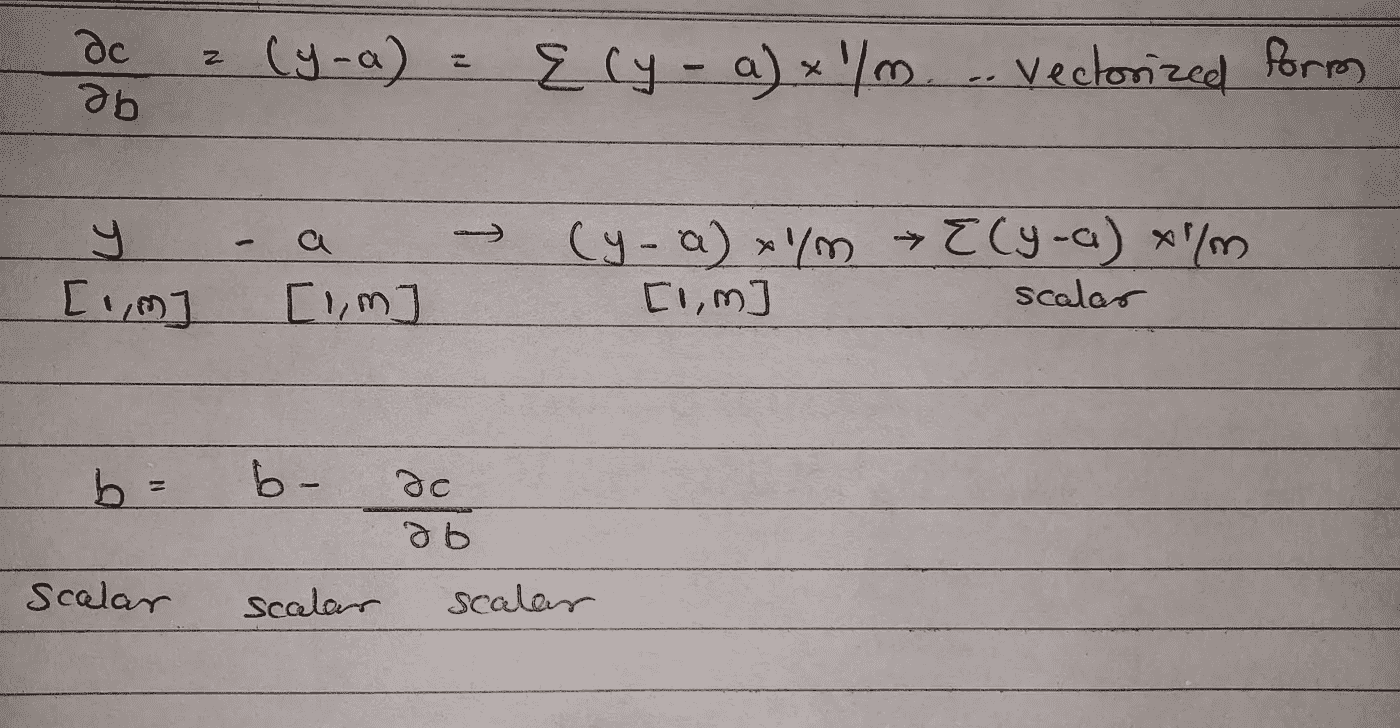 ∂c/∂b = (y-a) = Σ (y - a) x 1/m ... vectorized form
y - a → (y-a) x 1/m → Σ(y-a) x 1/m
[1,m] [1,m] [1,m] scalar
b = b - ∂c/∂b
scalar scalar scalar